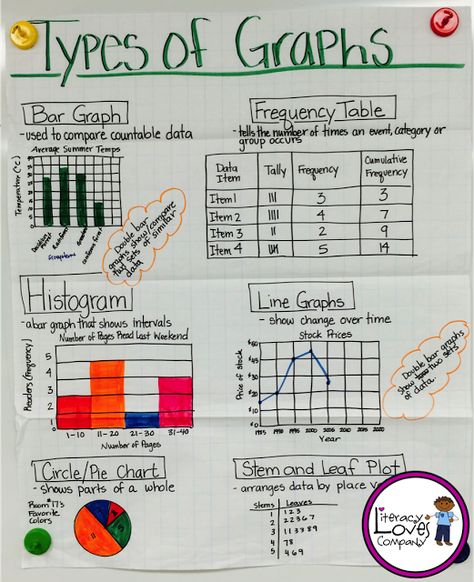 Types of Graphs
Bar Graph
-used to compare countable data
Average Summer Temps
Temperature (°C)
Ecosystems
Double bar
graphs show/compare
two sets of similar
data
Frequency Table
-tells the number of times an event, category or
group occurs
Data Item Tally Frequency Cumulative Frequency
Item 1 ||| 3 3
Item 2 |||| 4 7
Item 3 || 2 9
Item 4 5 14
Histogram
- a bar graph that shows intervals
Number of Pages Read Last Weekend
Readers (frequency)
5
4
3
2
1
1-10 11-20 21-30 31-40
Number of Pages
Line Graphs
- show change over time
Stock Prices
Price of Stock
1985 1990 1995 2000 2005 2010
Year
Double bar graphs
show two sets
of data.
Circle/Pie Chart
- shows parts of a whole
Room #17's
Favorite
Colors
11
Stem and Leaf Plot
- arranges data by place
Stems Leaves
1 1 2 3
2 2 2 3 6 7
3 1 1 3 3 8 9
4 7 8
5 4 6 9
Literacy
Loves
Company